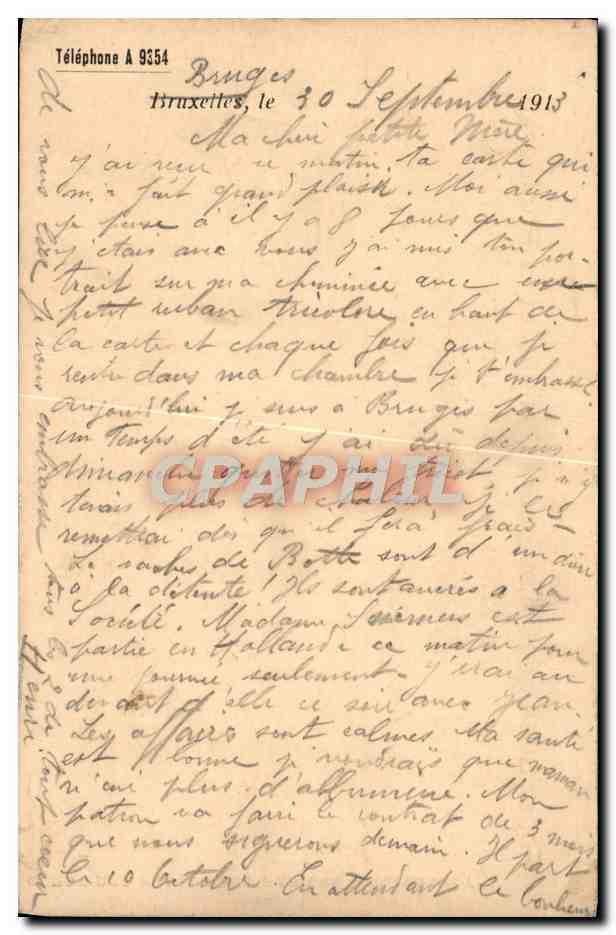 Téléphone A 9354
Bruges
Bruxelles, le 30 Septembre 1913
Ma chère petite Mère
J'ai reçu ce matin ta carte qui
m'a fait grand plaisir. Moi aussi
je pense à il y a 8 jours que
j'étais avec vous j'ai mis ton por-
trait sur ma cheminée avec un
petit ruban tricolore en haut de
la carte et chaque fois que je
rentre dans ma chambre je t'embrasse
aujourd'hui je suis à Bruges par
un temps d'été j'ai dû depuis
dimanche quitter mon je n'y
tenais plus de chaleur je les
remettrai dès qu'il fera froid
Le de Botte sont d'un dur
à la détente! Ils sont à la
Société. Madame Siemens est
partie en Hollande ce matin pour
une journée seulement. J'irai au
devant d'elle ce soir avec Jean.
Les affaires sont calmes Ma santé
est bonne je voudrais que maman
n'ai plus d'albumine. Mon
patron va faire le contrat de 3 mois
que nous signerons demain. Il part
le 10 Octobre. En attendant le bonheur
de vous lire je vous embrasse tous les 2 de tout cœur
Henri
CPARAMA